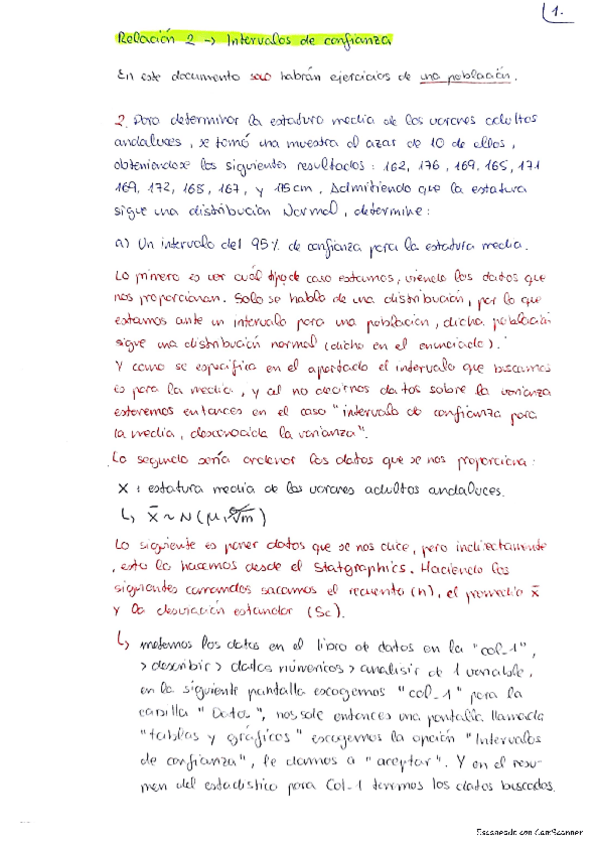 1.
Relación 2 → Intervalos de confianza
En este documento solo habrán ejercicios de una población.
2. Para determinar la estatura media de los varones adultos
andaluces, se tomó una muestra al azar de 10 de ellos,
obteniendose los siguientes resultados: 162, 176, 169, 165, 171
169, 172, 168, 167, y 175cm, Admitiendo que la estatura
sigue una distribución Normal, determine:
a) Un intervalo del 95% de confianza para la estatura media.
Lo primero es ver cuál tipo de caso estamos, viendo los datos que
nos proporcionan. Solo se habla de una distribución, por lo que
estamos ante un intervalo para una población, dicha población
sigue una distribución normal (dicho en el enunciado).
Y como se especifica en el apartado el intervalo que buscamos
es para la media, y al no decirnos datos sobre la varianza
estaremos entonces en el caso "intervalo de confianza para
la media, desconocida la varianza".
Lo segundo sería ordenar los datos que se nos proporciona:
X : estatura media de los varones adultos andaluces.
↳ x̄ ~ N(μ,
Lo siguiente es poner datos que se nos dice, pero indirectamente
, esto lo hacemos desde el Statgraphics. Haciendo los
siguientes comandos sacamos el recuento (n), el promedio x̄
y la desviación estandar (Sc).
↳ metemos los datos en el libro de datos en la "col_1",
> describir > datos númericos > analisir de 1 variable,
en la siguiente pantalla escogemos "col_1" para la
casilla "Datos", nos sale entonces una pantalla llamada
"tablas y gráficos" escogemos la opción "Intervalos
de confianza", le damos a "aceptar". Y en el resu-
men del estadístico para Col_1 tenemos los datos buscados.
Escaneado con CamScanner